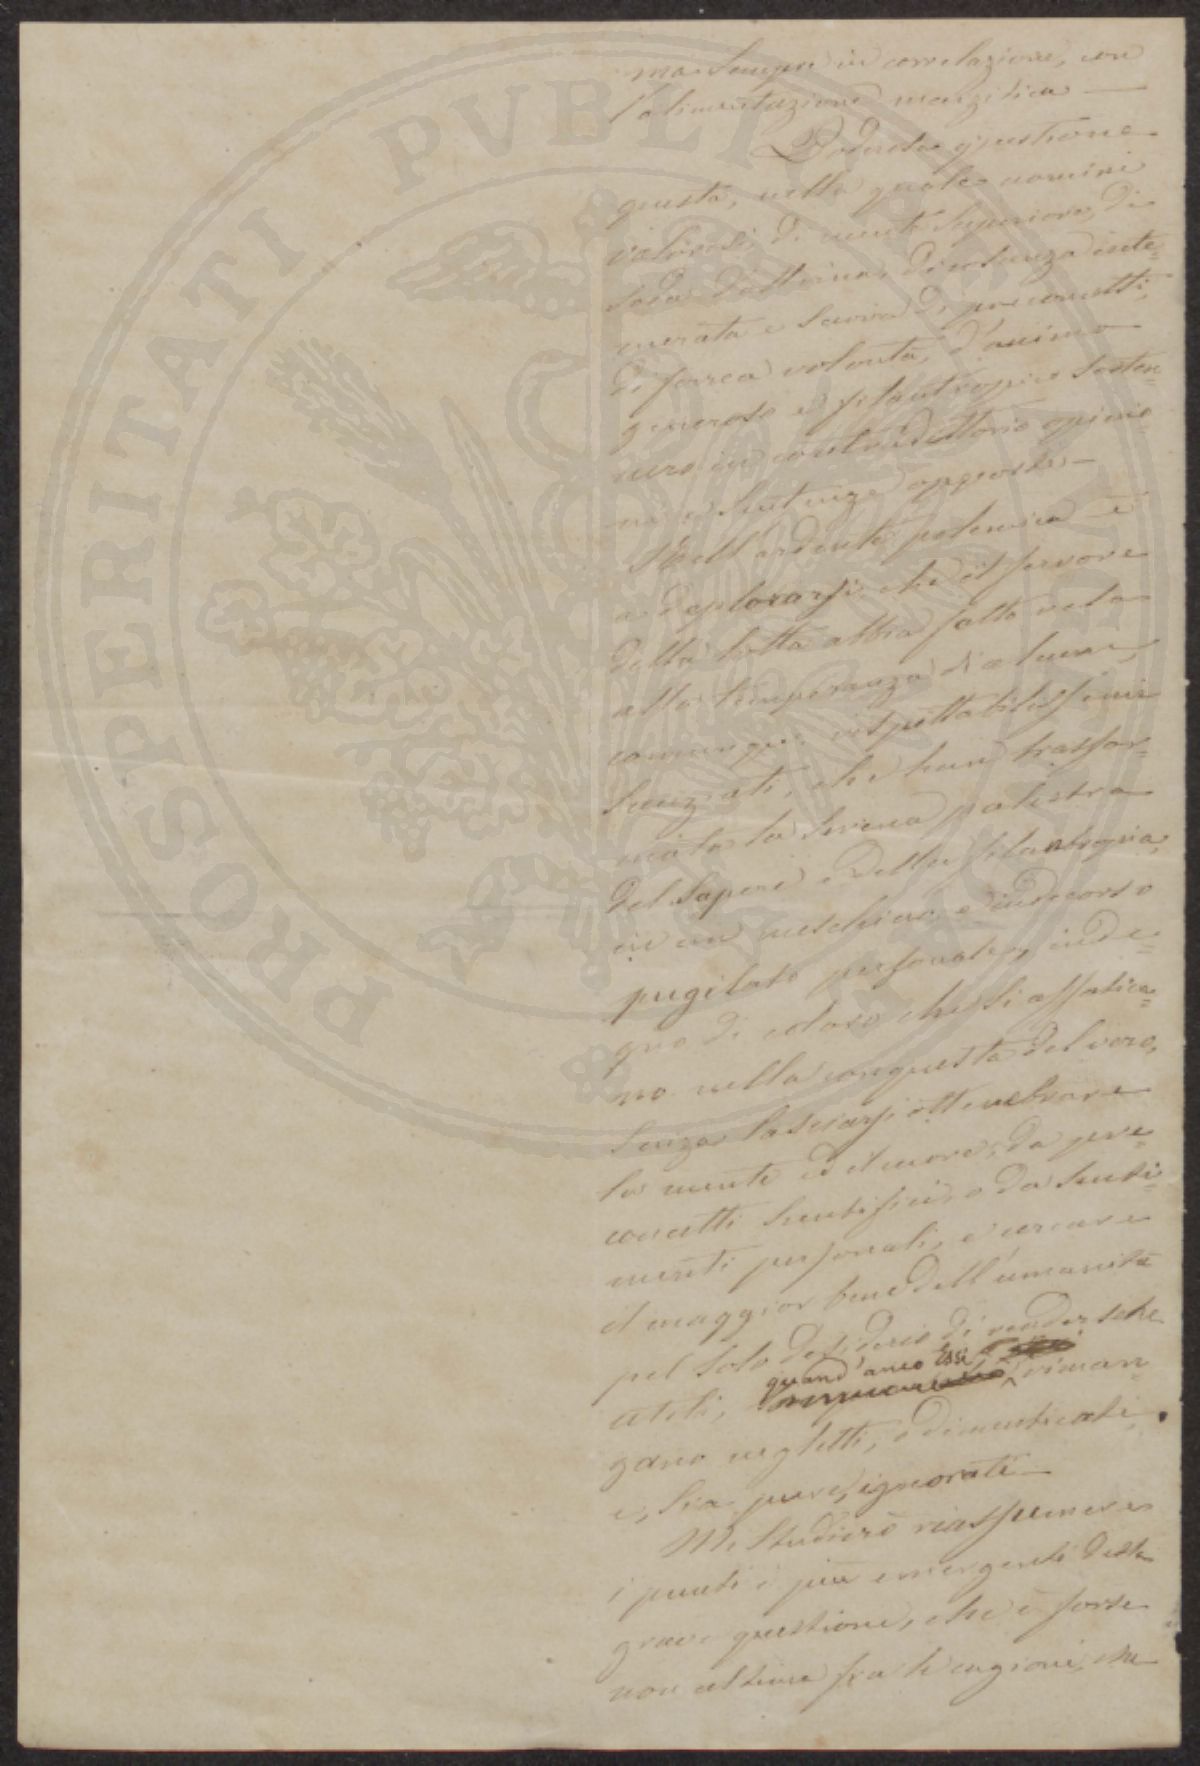 ma sempre in correlazione, con
l'alimentazione maizitica —
Poderosa quistione
questa, nella quale uomini
valorosi, di mente superiore, di
soda dottrina, di coscienza inte=
merata e scevra di preconcetti,
di ferrea volontà, d'animo
generoso e filantropico sosten=
nero in contradittorio opinio=
ni e sentenze opposte —
Nell'ardente polemica è
a deplorarsi che il fervore
della lotta abbia fatto velo
alla temperanza di alcuni,
comunque rispettabilissimi
scienziati, che han trasfor=
mato la serena palestra
del sapere e della filantropia,
in un meschino e indecoroso
pugilato personale, inde=
gno di coloro che si affatica=
no nella conquista del vero,
senza lasciarsi ottenebrare
la mente ed il cuore, da pre=
concetti scientifici, o da senti=
menti personali, e cercare
il maggior bene dell'umanità
pel solo desiderio di rendersele
utili, quand'anco essi riman=
gano negletti, o dimenticati,
e, sia pure, ignorati —
Mi studierò riassumere
i punti i più emergenti della
grave quistione, che è forse
non ultima fra le cagioni, che